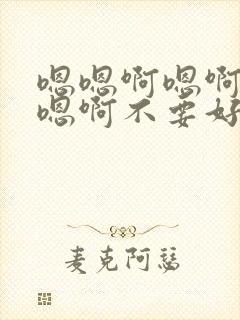 嗯嗯啊嗯啊
嗯啊不要好
麦克阿瑟